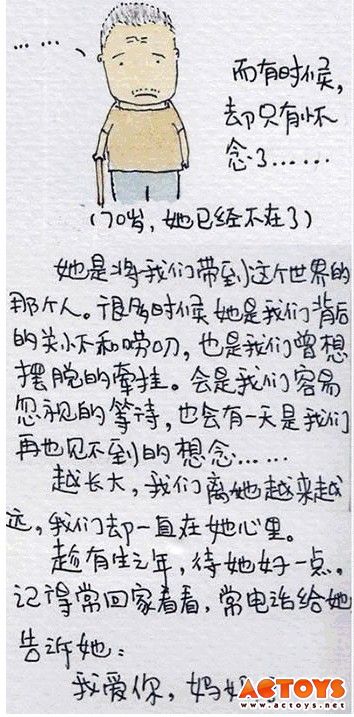 ……
而有时候，
却只有怀
念了……
（70岁，她已经不在了）
她是将我们带到这个世界的
那个人。很多时候她是我们背后
的关怀和唠叨，也是我们曾想
摆脱的牵挂。会是我们容易
忽视的等待，也会有一天是我们
再也见不到的想念……
越长大，我们离她越来越
远，我们却一直在她心里。
趁有生之年，待她好一点。
记得常回家看看，常电话给她
告诉她：
我爱你，妈妈
ACTOYS
www.actoys.net